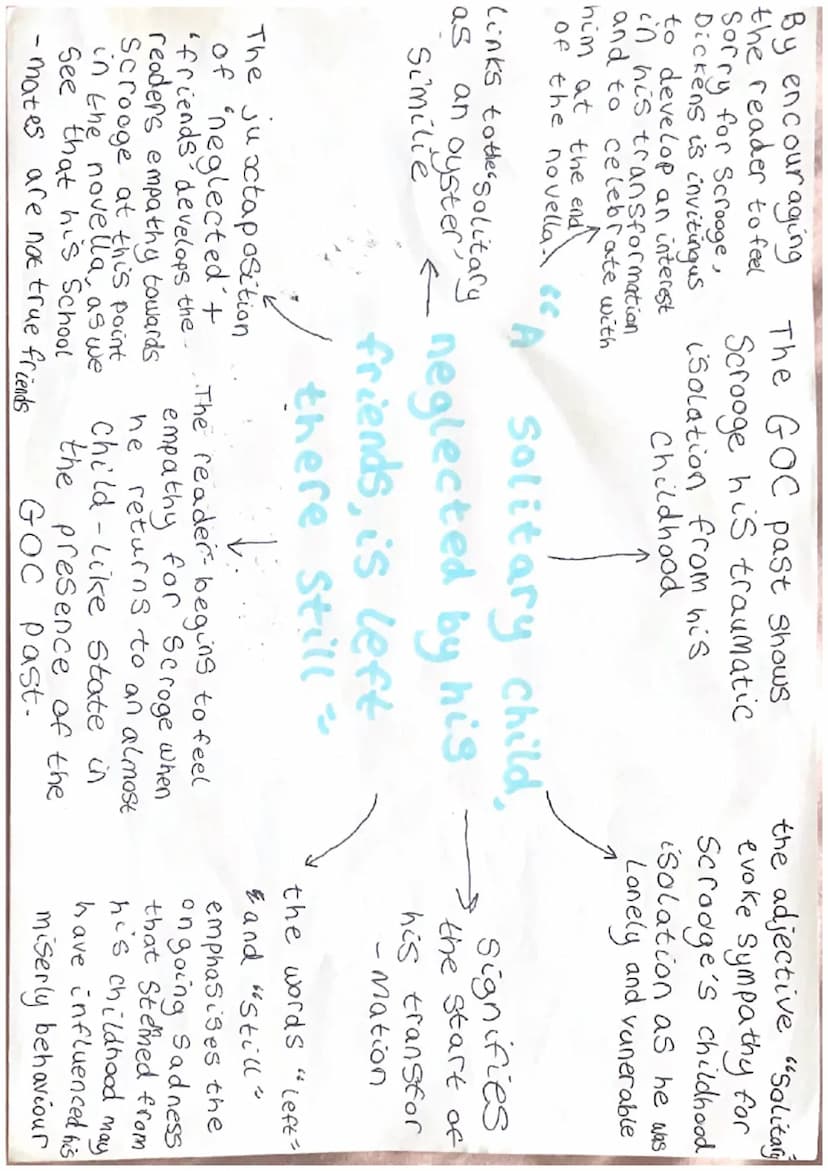 By encouraging
the reader to feel
sorry for Scrooge,
Dickens is inviting us
to develop an interest
in his transformation
and to celebrate with
him at the end
of the novella.
The GOC past shows
Scrooge his traumatic
isolation from his
childhood
the adjective "solitary"
evoke sympathy for
Scrooge's childhood
isolation as he was
Lonely and vunerable
Links to the "solitary
as an oyster,"
similie
"A solitary child,
neglected by his
friends, is left
there still"
signifies
the start of
his transfor
-mation
The juxtaposition
of 'neglected' +
'friends' develops the
readers empathy towards
Scrooge at this point
in the novella, as we
see that his school
-mates are not true friends
The reader begins to feel
empathy for Scroge when
he returns to an almost
child-like state in
the presence of the
GOC past.
the words "left"
and "still"
emphasises the
ongoing sadness
that stemed from
his childhood may
have influenced his
miserly behaviour